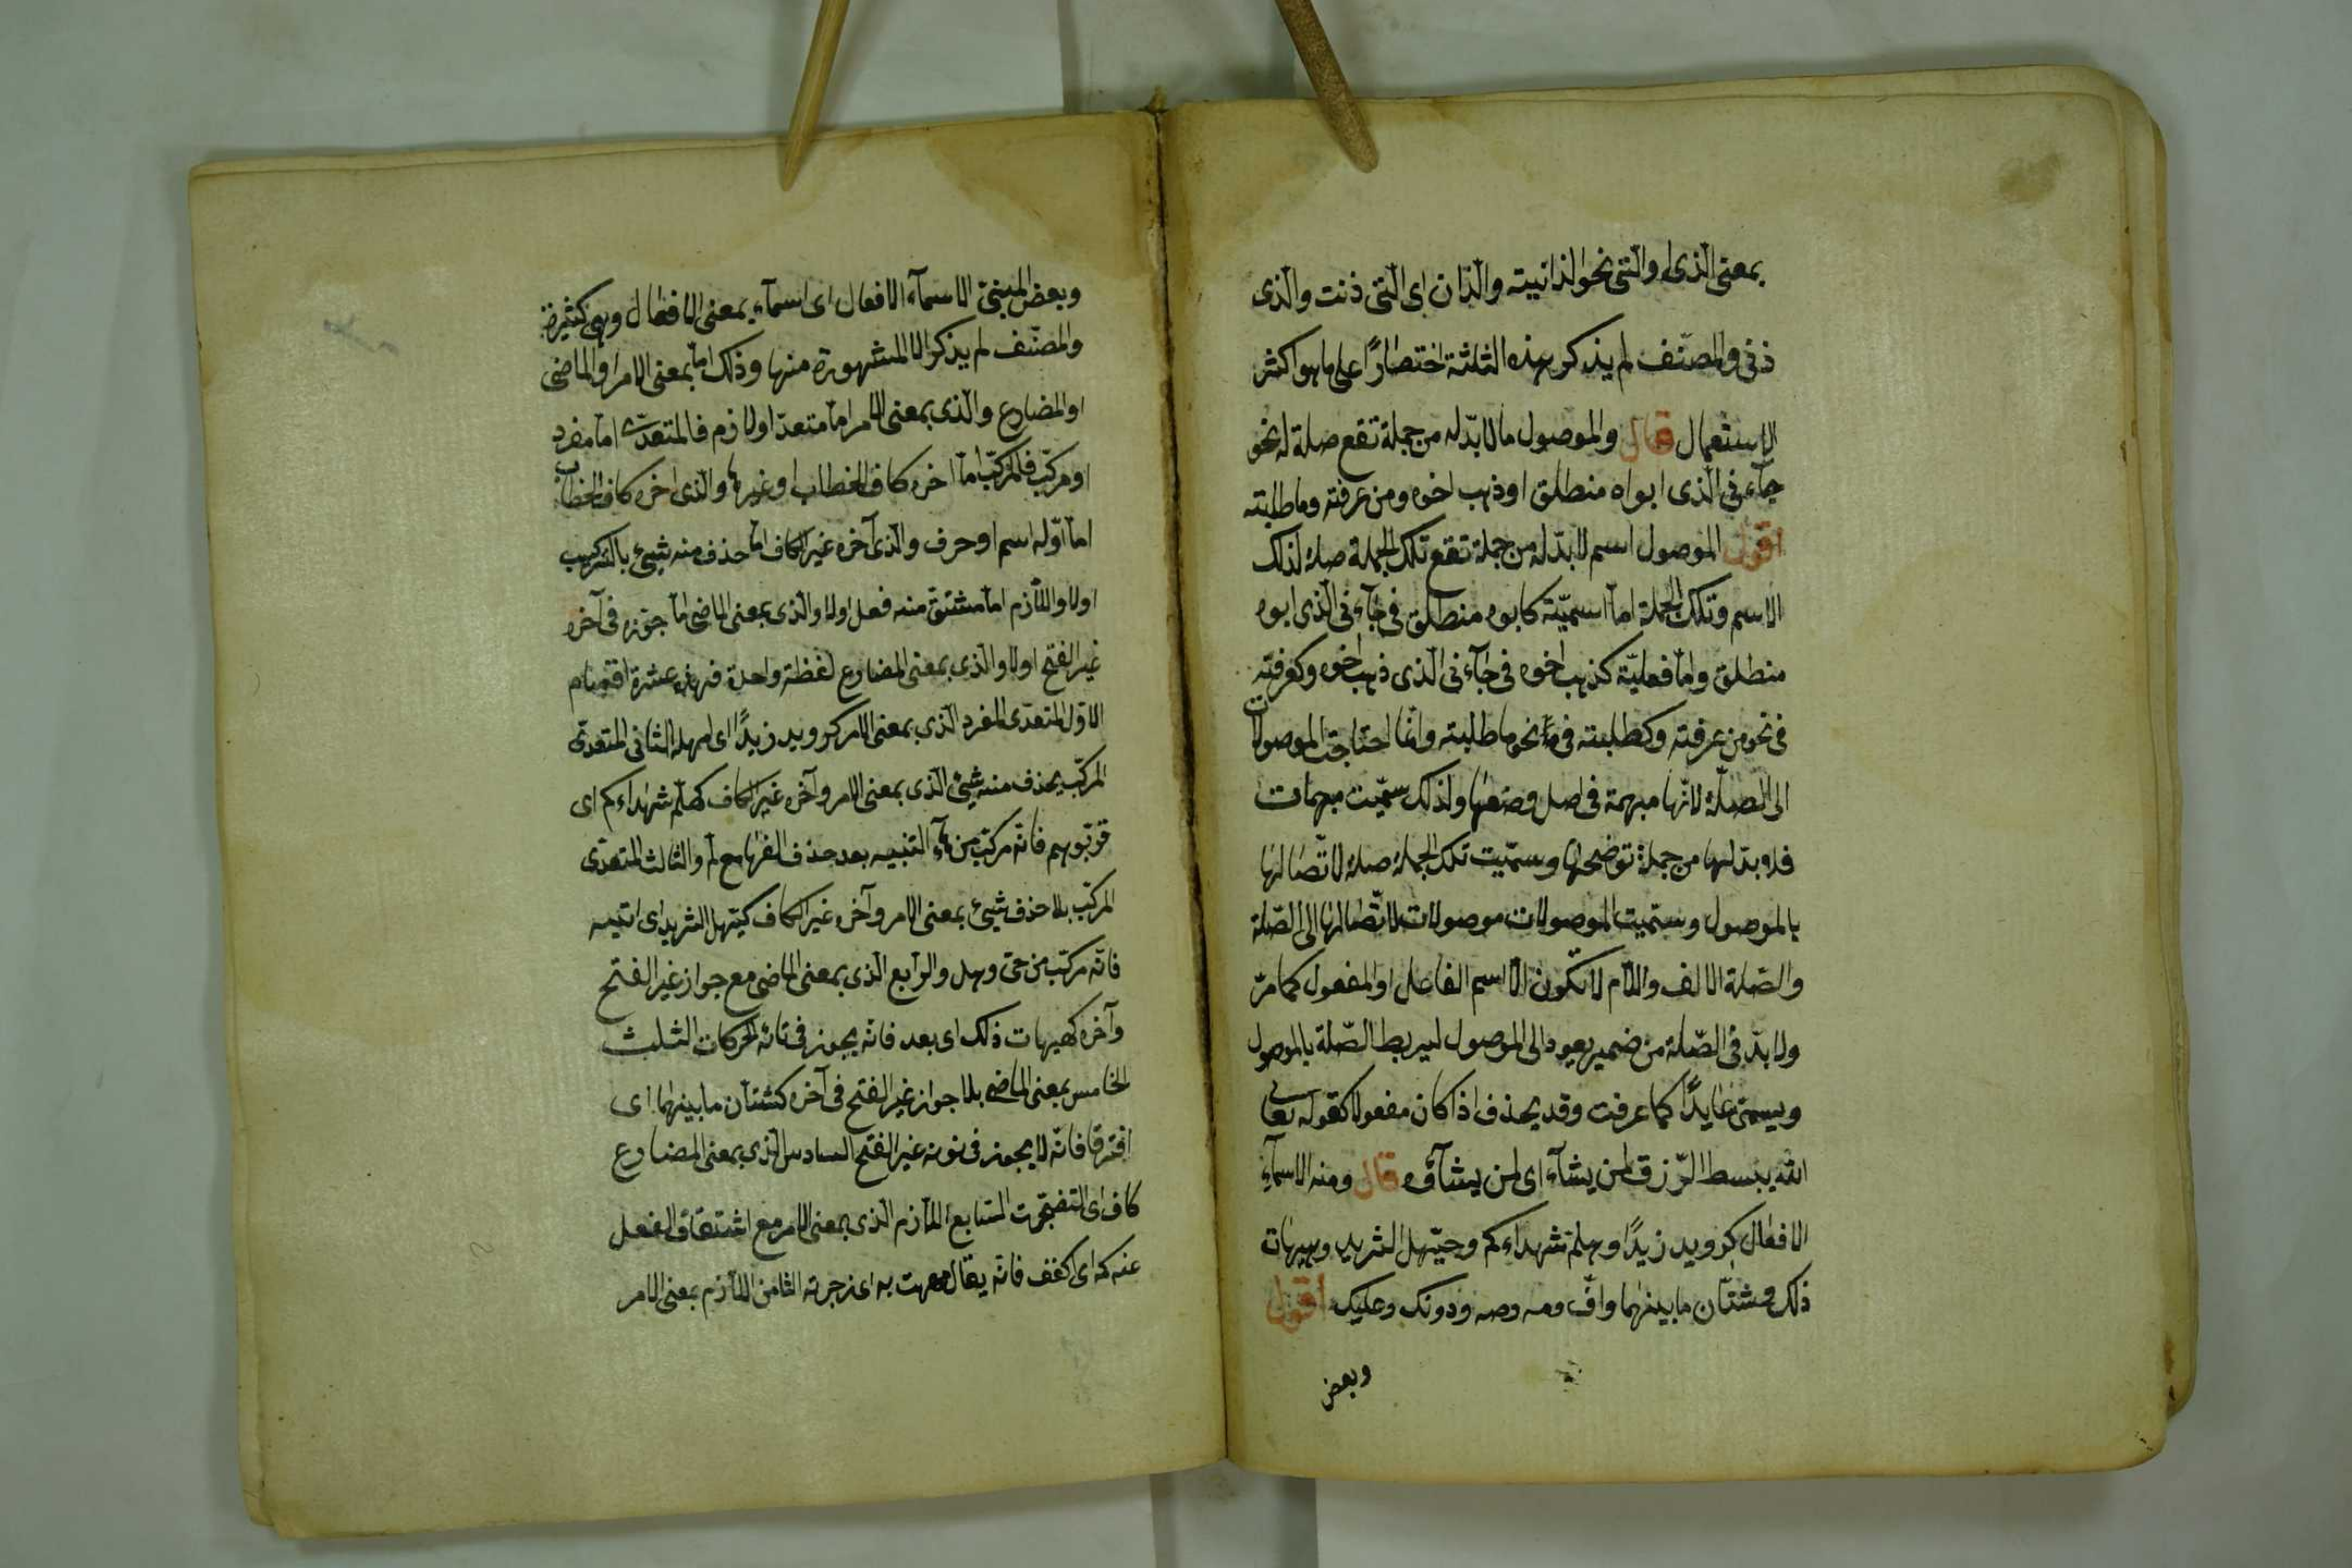 بمعنى الذى او الّتى نحو الذانيته والذان اى الّتى ذنت والّذى
ذنى والمصنّف لم يذكر هذه الثلثة اختصارًا على ما هو اكثر
الاستعمال قال والموصول ما لا بدّ له من جملة تقع صلة له نحو
جآءنى الّذى ابواه منطلق او ذهب اخوه ومن عرفته وما طلبته
اقول الموصول اسم لا بدّ له من جملة تقع تلك الجملة صلة لذلك
الاسم وتلك الجملة امّا اسميّة كابوه منطلق فى جآءنى الّذى ابوه
منطلق وامّا فعليّة كذهب اخوه فى جآءنى الّذى ذهب اخوه وكعرفته
فى نحو من عرفته وكطلبته فى نحو ما طلبته وانّما احتاجت الموصولات
الى الصّلة لانّها مبهمة فى اصل وضعها ولذلك سمّيت مبهمات
فلا بدّ لها من جملة توضحها وسمّيت تلك الجملة صلة لاتّصالها
بالموصول وسمّيت الموصولات موصولات لاتّصالها الى الصّلة
والصّلة الالف واللّام لا تكون الّا اسم الفاعل او المفعول كما مرّ
ولا بدّ فى الصّلة من ضمير يعود الى الموصول ليربط الصّلة بالموصول
ويسمّى عايدًا كما عرفت وقد يحذف اذا كان مفعولا كقوله تعالى
الله يبسط الرّزق لمن يشآء اى لمن يشآؤه قال ومنه الاسمآء
الافعال كرويد زيدًا وهلمّ شهداءكم وحيّهل الثريد وهيهات
ذلك وشتّان ما بينهما وافّ ومه وصه ودونك وعليك اقول
وبعض
وبعض المبنىّ الاسمآء الافعال اى اسمآء بمعنى الافعال وهى كثيرة
والمصنّف لم يذكر الا المشهورة منها وذلك امّا بمعنى الامر او الماضى
او المضارع والّذى بمعنى الامر امّا متعدّ او لازم فالمتعدّى امّا مفرد
او مركّب فالمركّب امّا اخره كاف الخطاب او غيرها والّذى اخره كاف الخطاب
امّا اوّله اسم او حرف والّذى آخره غير الكاف امّا حذف منه شيئ بالتركيب
اولا واللّازم امّا مشتقّ منه فعل اولا والّذى بمعنى الماضى امّا جوّزه فى آخره
غير الفتح اولا والّذى بمعنى المضارع لفظة واحدة فهذه عشرة اقسام
الاوّل المتعدّى المفرد الّذى بمعنى الامر كرويد زيدًا اى امهله الثانى المتعدّى
المركّب بحذف منه شيئ الّذى بمعنى الامر وآخره غير الكاف كهلمّ شهداءكم اى
قرّبوهم فانّه مركّب من هآء التنبيه بعد حذف الفها مع لمّ والثالث المتعدّى
المركّب بلا حذف شيئ بمعنى الامر وآخره غير الكاف كحيّهل الثريد اى ائتيه
فانّه مركّب من حىّ وهل والرّابع الّذى بمعنى الماضى مع جواز غير الفتح
وآخره كهيهات ذلك اى بعد فانّه يجوز فى تائه الحركات الثلث
الخامس بمعنى الماضى بلا جواز غير الفتح فى آخره كشتّان ما بينهما اى
افترقا فانّه لا يجوز فى نونه غير الفتح السادس الّذى بمعنى المضارع
كافّ اى اتضجّرت السّابع اللّازم الّذى بمعنى الامر مع اشتقاق الفعل
عنه كمه اى اكفف فانّه يقال مهمهت به اى زجرته الثامن اللّازم بمعنى الامر